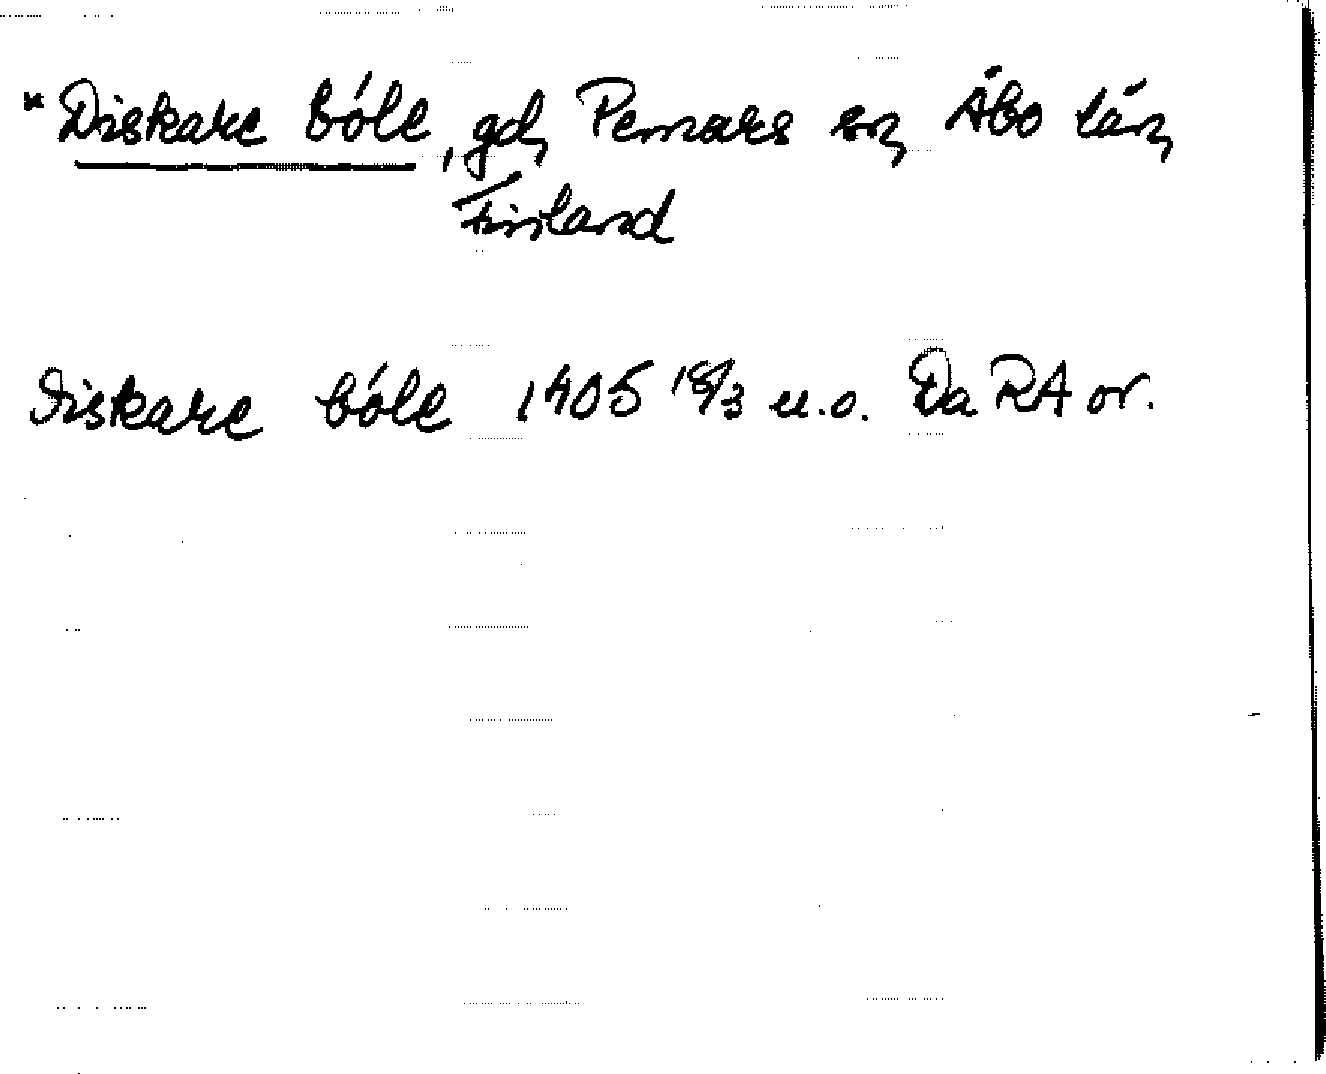 "Diskare bóle, gd, Pemars sn, Åbo län,
Finland
Diskare bóle 1405 18/3 u.o. Da RA or.